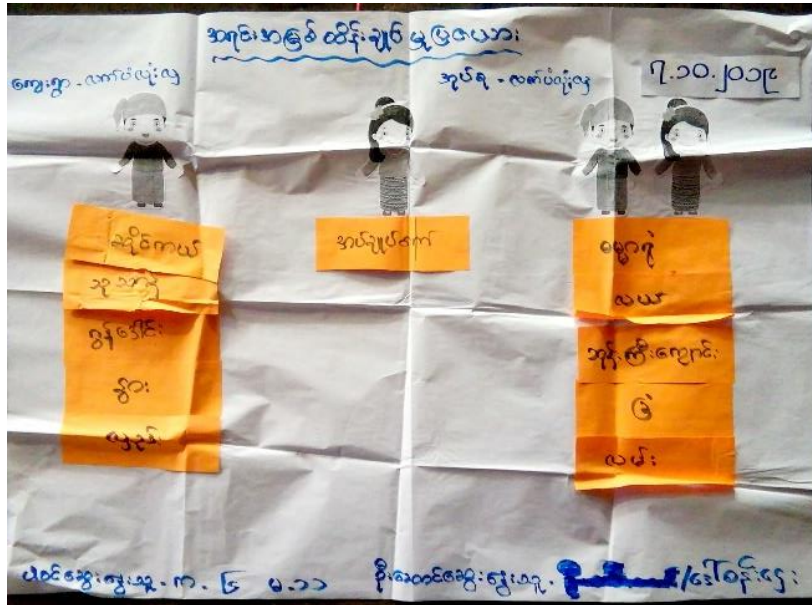 အရင်းအမြစ် ထိန်းချုပ်မှုပြဇယား
ကျေးရွာ - လက်ပံလုံးလှ
အုပ်စု - လက်ပံလုံးလှ
၇.၁၀.၂၀၁၉
ဆိုင်ကယ်
သုသာန်
ဂွန်ဒေါင်း
နွား
လှည်း
အပ်ချုပ်စက်
ဓမ္မာရုံ
လယ်
ဘုန်းကြီးကျောင်း
ခြံ
လမ်း
ပါဝင်ဆွေးနွေးသူ - က - ၆ မ - ၁၁
ဦးဆောင်ဆွေးနွေးသူ -